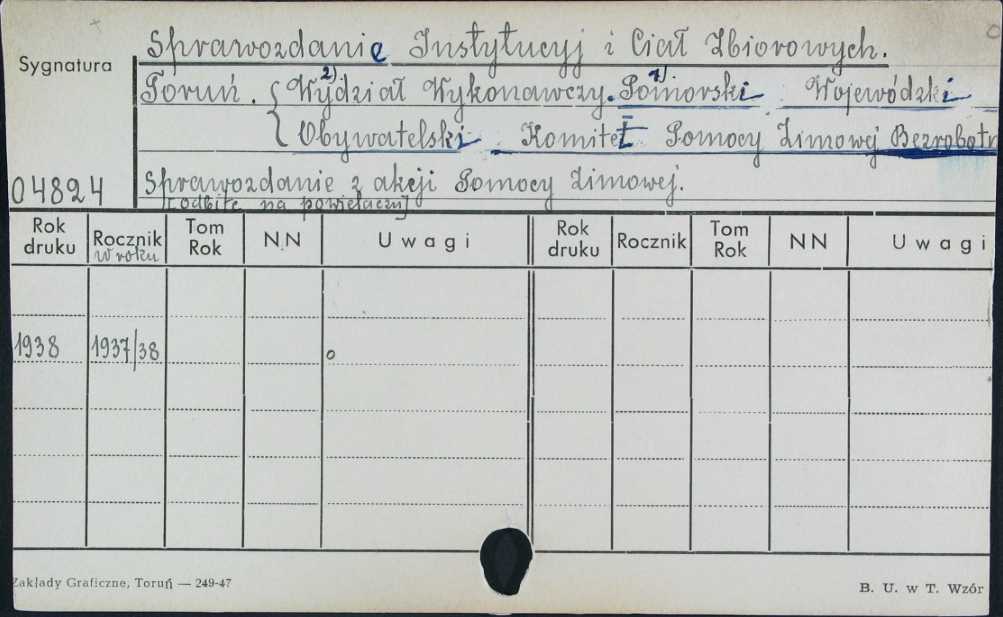 Sprawozdanie Instytucyj i Ciał Zbiorowych.
Sygnatura
2) 1)
Toruń. { Wydział Wykonawczy. Pomorski Wojewódzki
Obywatelski Komitet Pomocy Zimowej Bezrobotn
04824
Sprawozdanie z akcji Pomocy Zimowej.
[odbite na powielaczu]
Rok druku Rocznik Tom Rok NN Uwagi Rok druku Rocznik Tom Rok NN Uwagi
W roku
1938 1937/38 o
Zakłady Graficzne, Toruń — 249-47
B. U. w T. Wzór